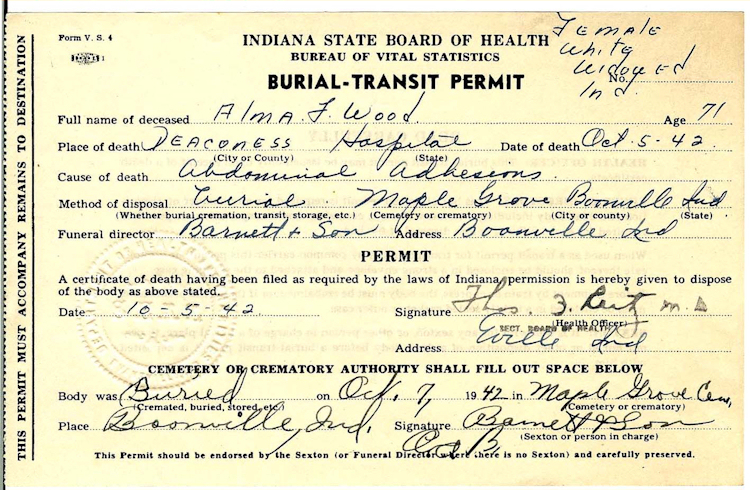 Form V. S. 4
Female
White
Widowed
Ind
INDIANA STATE BOARD OF HEALTH
BUREAU OF VITAL STATISTICS
No.
BURIAL-TRANSIT PERMIT
Full name of deceased Alma F. Wood Age 71
Place of death Deaconess Hospital Date of death Oct. 5-42.
(City or County) (State)
Cause of death Abdominal Adhesions.
Method of disposal burial. Maple Grove Boonville Ind
(Whether burial, cremation, transit, storage, etc.) (Cemetery or crematory) (City or county) (State)
Funeral director Barnett & Son Address Boonville Ind
PERMIT
A certificate of death having been filed as required by the laws of Indiana, permission is hereby given to dispose
of the body as above stated.
Date 10-5-42. Signature Thos. M D
(Health Officer)
SECT. BOARD OF HEALTH
Address Eville Ind
CEMETERY OR CREMATORY AUTHORITY SHALL FILL OUT SPACE BELOW
Body was Buried on Oct. 7, 1942 in Maple Grove Cem,
(Cremated, buried, stored, etc.) (Cemetery or crematory)
Place Boonville, Ind. Signature Barnett & Son
(Sexton or person in charge)
This Permit should be endorsed by the Sexton (or Funeral Director where there is no Sexton) and carefully preserved.
THIS PERMIT MUST ACCOMPANY REMAINS TO DESTINATION